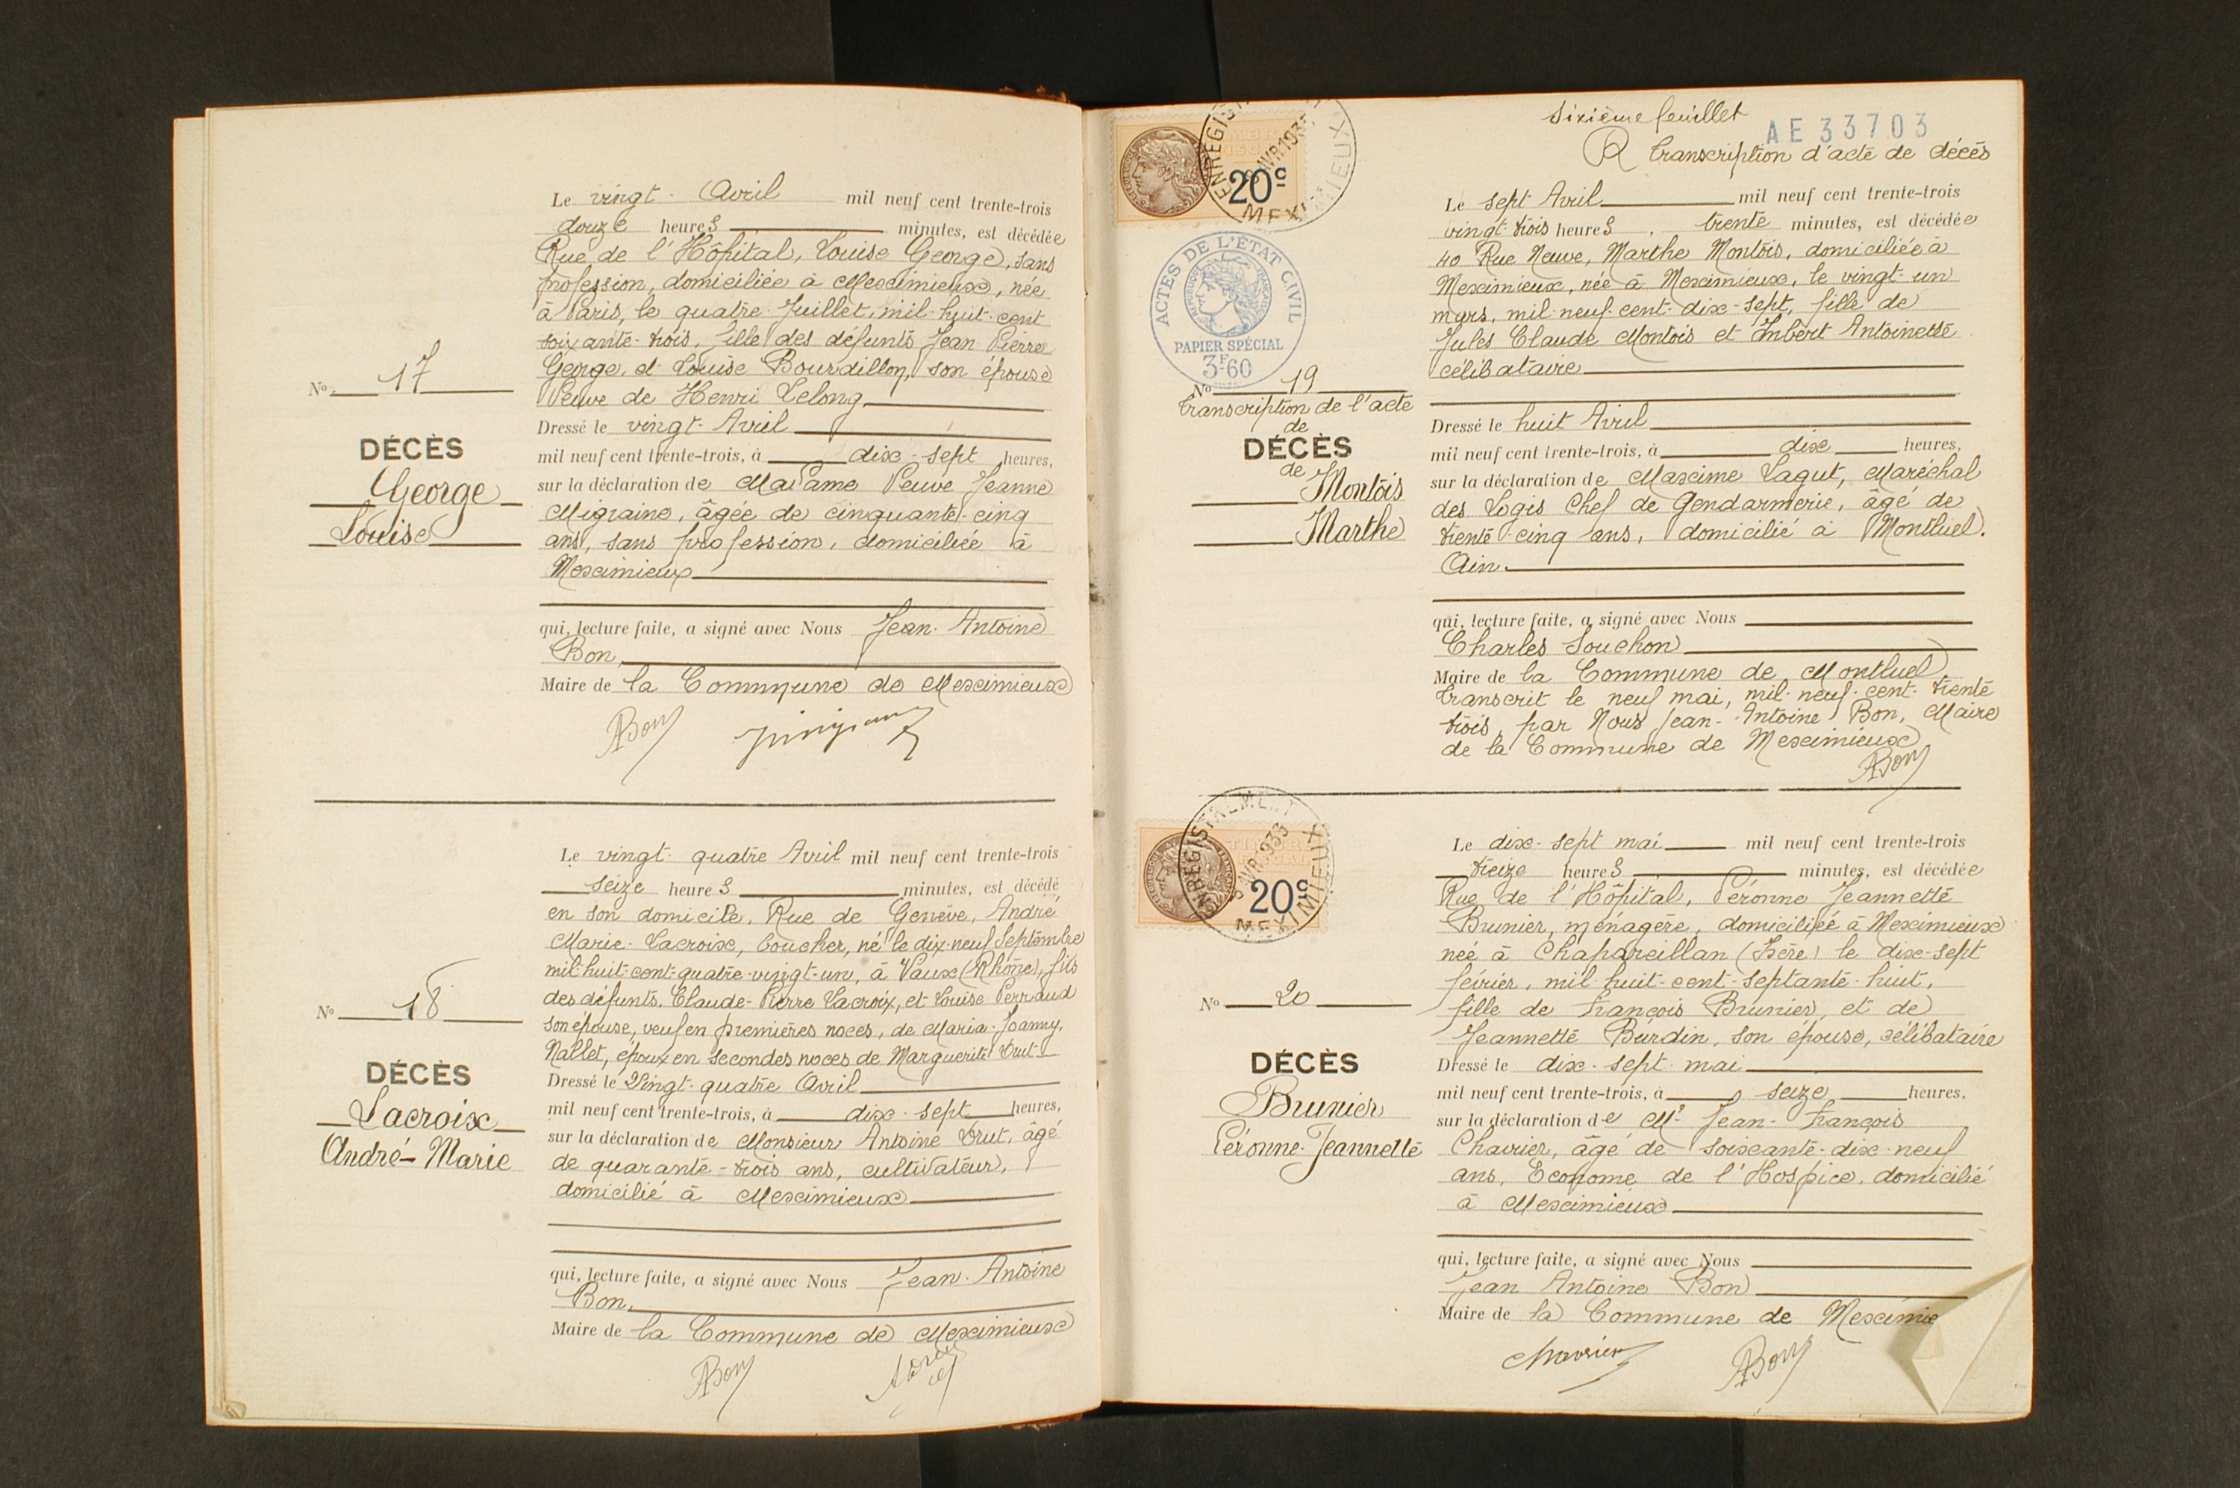 Le vingt. Avril mil neuf cent trente-trois
douze heures minutes, est décédée
Rue de l'Hôpital, Louise George, sans
profession, domiciliée à Meximieux, née
à Paris, le quatre Juillet, mil-huit-cent
soixante-trois, fille des défunts Jean Pierre
George, et Louise Bourdillon, son épouse
Veuve de Henri Lelong
No 17
Dressé le vingt. Avril
DÉCÈS
mil neuf cent trente-trois, à dix-sept heures,
George
sur la déclaration de Madame Veuve Jeanne
Louise
Migraine, âgée de cinquante-cinq
ans, sans profession, domiciliée à
Meximieux
qui, lecture faite, a signé avec Nous Jean-Antoine
Bon,
Maire de la Commune de Meximieux
ABon
Le vingt-quatre Avril mil neuf cent trente-trois
seize heures minutes, est décédé
en son domicile, Rue de Genève, André
Marie Lacroix, boucher, né le dix-neuf Septembre
mil-huit-cent-quatre-vingt-un, à Vaux (Rhône), fils
des défunts. Claude-Pierre Lacroix, et Louise Perraud
son épouse, veuf en premières noces, de Maria-Joanny,
Nallet, époux en secondes noces de Marguerite Drut
No 18
Dressé le Vingt-quatre Avril
DÉCÈS
mil neuf cent trente-trois, à dix-sept heures,
Lacroix
sur la déclaration de Monsieur Antoine Drut, âgé
André-Marie
de quarante-trois ans, cultivateur,
domicilié à Meximieux
qui, lecture faite, a signé avec Nous Jean-Antoine
Bon,
Maire de la Commune de Meximieux
ABon
Sixième feuillet
AE 33703
R Transcription d'acte de décès
20c
MEXIMIEUX
ACTES DE L'ÉTAT CIVIL
PAPIER SPÉCIAL
3F60
Le sept Avril mil neuf cent trente-trois
vingt-trois heures, trente minutes, est décédée
40 Rue Neuve, Marthe Montois, domiciliée à
Meximieux, née à Meximieux, le vingt-un
mars, mil-neuf-cent-dix-sept, fille de
Jules Claude Montois et Imbert Antoinette
célibataire
No 19
Transcription de l'acte
de
DÉCÈS
de
Montois
Marthe
Dressé le huit Avril
mil neuf cent trente-trois, à dix heures,
sur la déclaration de Maxime Lagut, Maréchal
des Logis Chef de Gendarmerie, âgé de
trente-cinq ans, domicilié à Montluel.
Ain.
qui, lecture faite, a signé avec Nous
Charles Souchon
Maire de la Commune de Montluel
Transcrit le neuf mai, mil-neuf-cent-trente
trois, par Nous Jean-Antoine Bon, Maire
de la Commune de Meximieux
ABon
20c
MEXIMIEUX
Le dix-sept mai mil neuf cent trente-trois
treize heures minutes, est décédée
Rue de l'Hôpital, Péronne Jeannette
Brunier, ménagère, domiciliée à Meximieux
née à Chapareillan (Isère) le dix-sept
février, mil-huit-cent-septante-huit,
fille de François Brunier, et de
Jeannette Burdin, son épouse, célibataire
No 20
DÉCÈS
Brunier
Péronne-Jeannette
Dressé le dix-sept mai
mil neuf cent trente-trois, à seize heures,
sur la déclaration de Mr Jean-François
Chavrier, âgé de soixante-dix-neuf
ans, Econome de l'Hospice, domicilié
à Meximieux
qui, lecture faite, a signé avec Nous
Jean Antoine Bon
Maire de la Commune de Meximie
Chavrier ABon